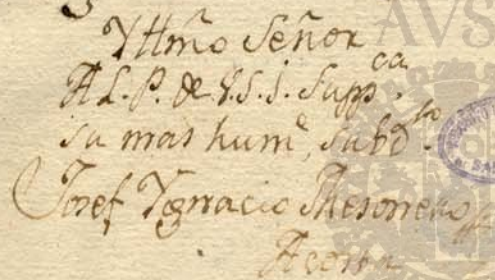 Yttmõ Señor
A L. P. de V. S. I. Supp.ca
su mas hum.e subd.to
Josef Ygnacio Thesorero
Acosta
AVS